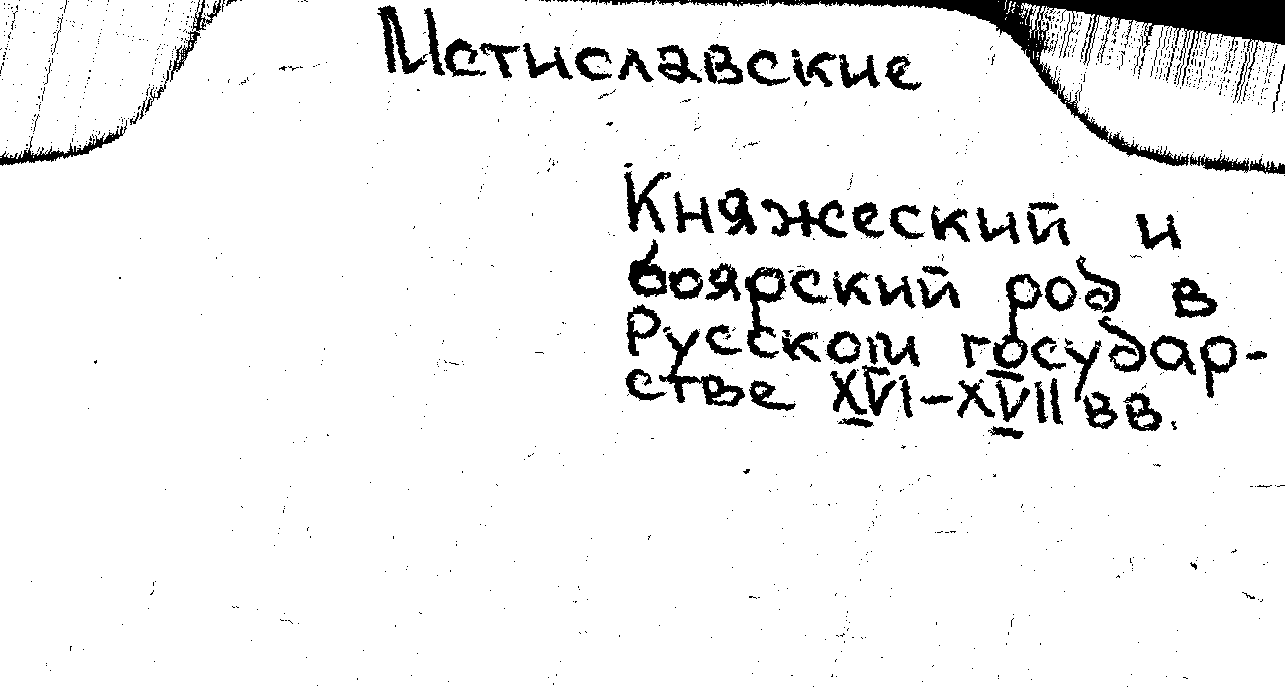 Мстиславские
Княжеский и
боярский род в
Русском государ-
стве XVI-XVII вв.